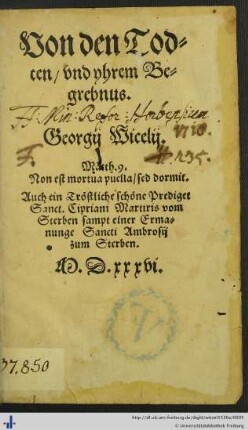 Von den Tod-
ten/ vnd yhrem Be-
grebnus.
Georgij Wicelij.
Math. 9.
Non est mortua puella/ sed dormit.
Auch ein Tröstliche schöne Prediget
Sanct. Cipriani Martiris vom
Sterben sampt einer Erma-
nunge Sancti Ambrosij
zum Sterben.
M. D. xxxvi.
37.850
© Universitätsbibliothek Freiburg